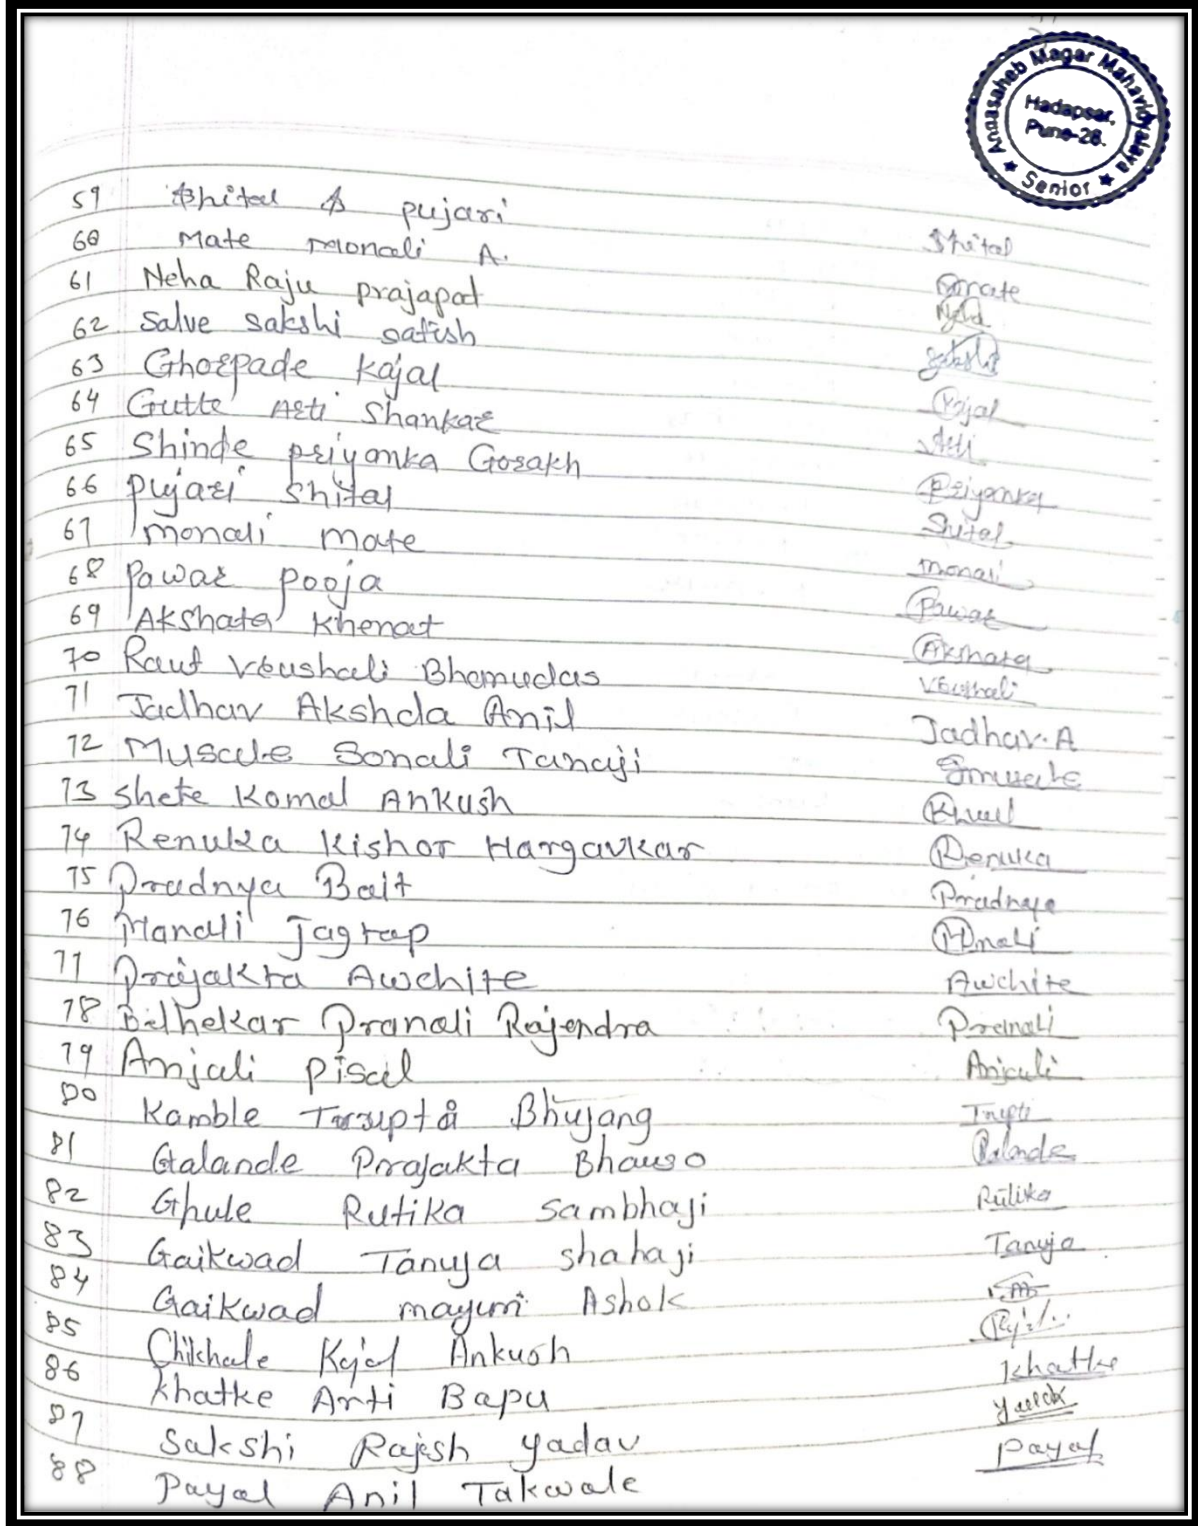 Annasaheb Magar Mahavidyalaya
Hadapsar,
Pune-28.
★ Senior ★
59 Shital S pujari Shital
60 Mate Monali A. Mate
61 Neha Raju prajapat Neha
62 Salve sakshi satish Sakshi
63 Ghorpade Kajal Kajal
64 Gutte Arti Shankar Arti
65 Shinde priyanka Gorakh Priyanka
66 pujari shital Shital
67 monali mate monali
68 Pawar pooja Pawar
69 Akshata Khenat Akshata
70 Raut Vrushali Bhamudas Vrushali
71 Jadhav Akshda Anil Jadhav.A
72 Musale Sonali Tanaji Smusale
73 shete Komal Ankush
74 Renuka Kishor Hargavkar Renuka
75 Pradnya Bait Pradnya
76 Manali Jagtap Mnali
77 Prajakta Awchite Awchite
78 Belhekar Pranali Rajendra Pranali
79 Anjali pisal Anjali
80 Kamble Trupta Bhujang Trupti
81 Galande Prajakta Bhauso Galande
82 Ghule Rutika sambhaji Rutika
83 Gaikwad Tanuja shahaji Tanuja
84 Gaikwad mayuri Ashok
85 Chikhale Kajal Ankush
86 khatke Arti Bapu Khatke
87 Sakshi Rajesh yadav
88 Payal Anil Takwale payal